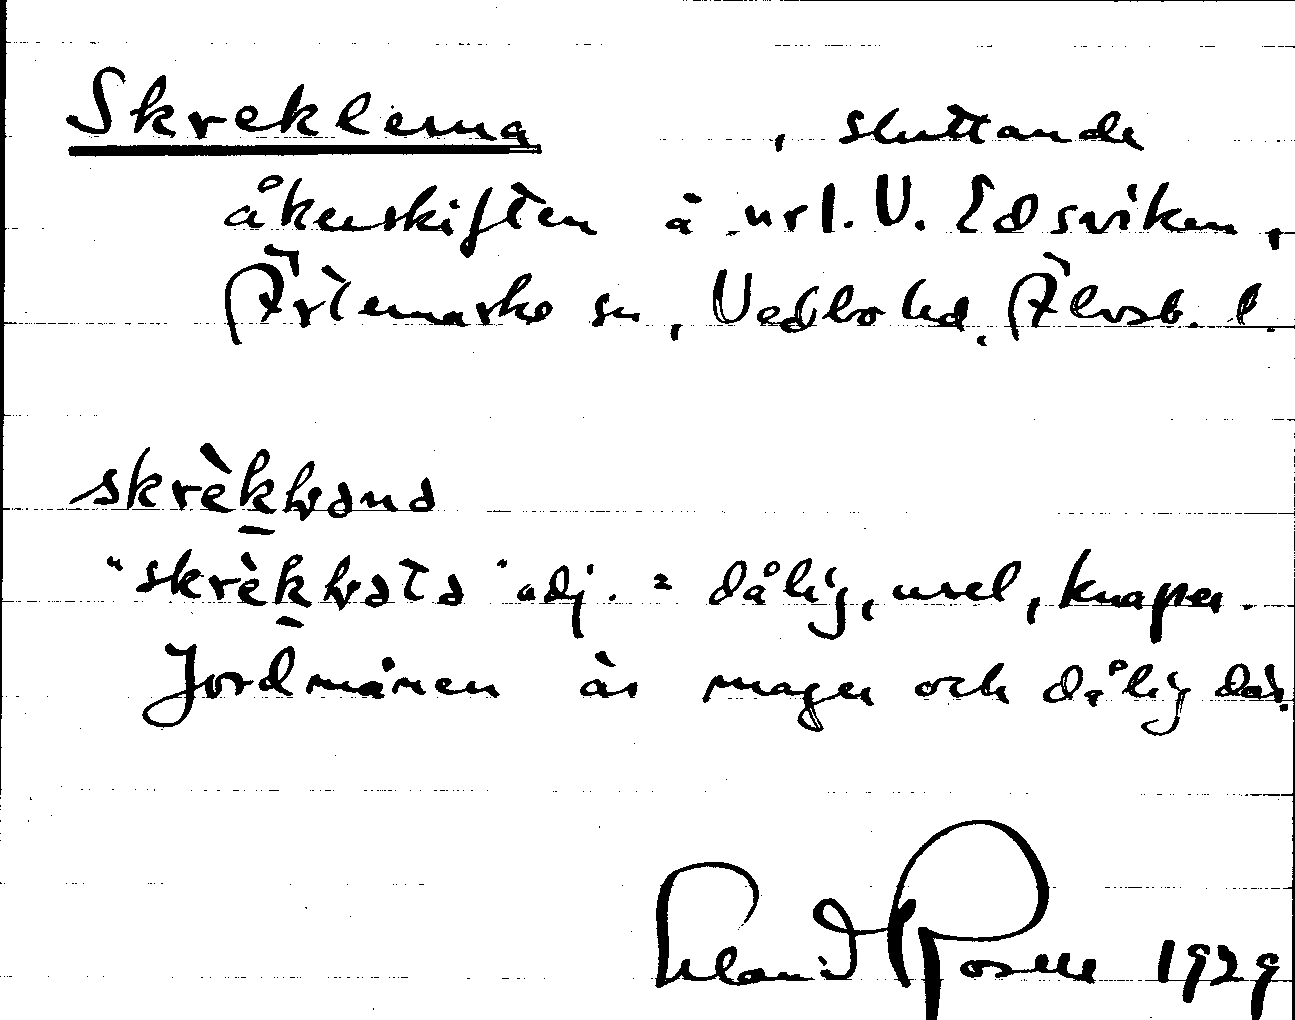 Skreklerna , sluttande
åkerskiften å nr 1. V. Edsviken,
Ärtemarks sn, Vedbo hd. Älvsb. l.
skrèkḷɷna
"skrèkḷɷta" adj. = dålig, usel, knaper.
Jordmånen är mager och dålig där.
Erland Rosell 1929